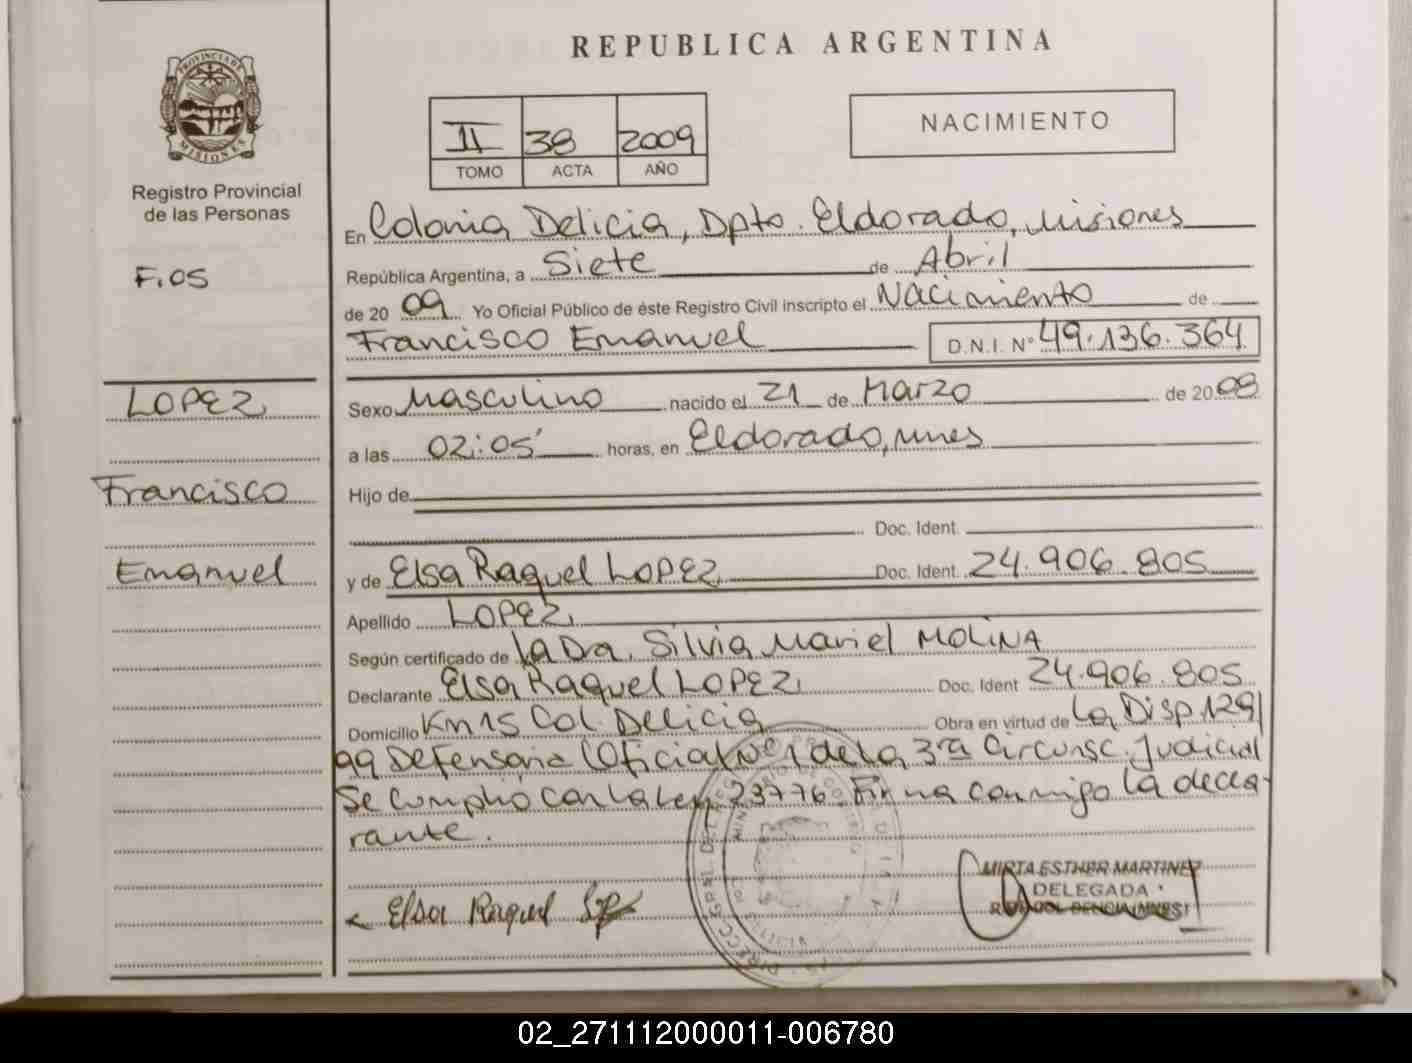 REPUBLICA ARGENTINA
PROVINCIA DE MISIONES
Registro Provincial
de las Personas
F.05
II 38 2009
TOMO ACTA AÑO
NACIMIENTO
En Colonia Delicia, Dpto. Eldorado, Misiones
República Argentina, a Siete de Abril
de 20 09 Yo Oficial Público de éste Registro Civil inscripto el Nacimiento de
Francisco Emanuel D.N.I. Nº 49.136.364
LOPEZ
Francisco
Emanuel
Sexo Masculino nacido el 21 de Marzo de 20 08
a las 02:05' horas, en Eldorado, Mnes
Hijo de
Doc. Ident.
y de Elsa Raquel LOPEZ Doc. Ident. 24.906.805
Apellido LOPEZ
Según certificado de la Dra. Silvia Mariel MOLINA
Declarante Elsa Raquel LOPEZ Doc. Ident 24.906.805
Domicilio Km 15 Col. Delicia Obra en virtud de La Disp 129/
09 Defensoria Oficial Nº 1 de la 3ra Circunsc. Judicial
Se cumplió con la Ley 23776. Firma conmigo la decla
rante.
Elsa Raquel
MIRTA ESTHER MARTINEZ
DELEGADA
02_271112000011-006780